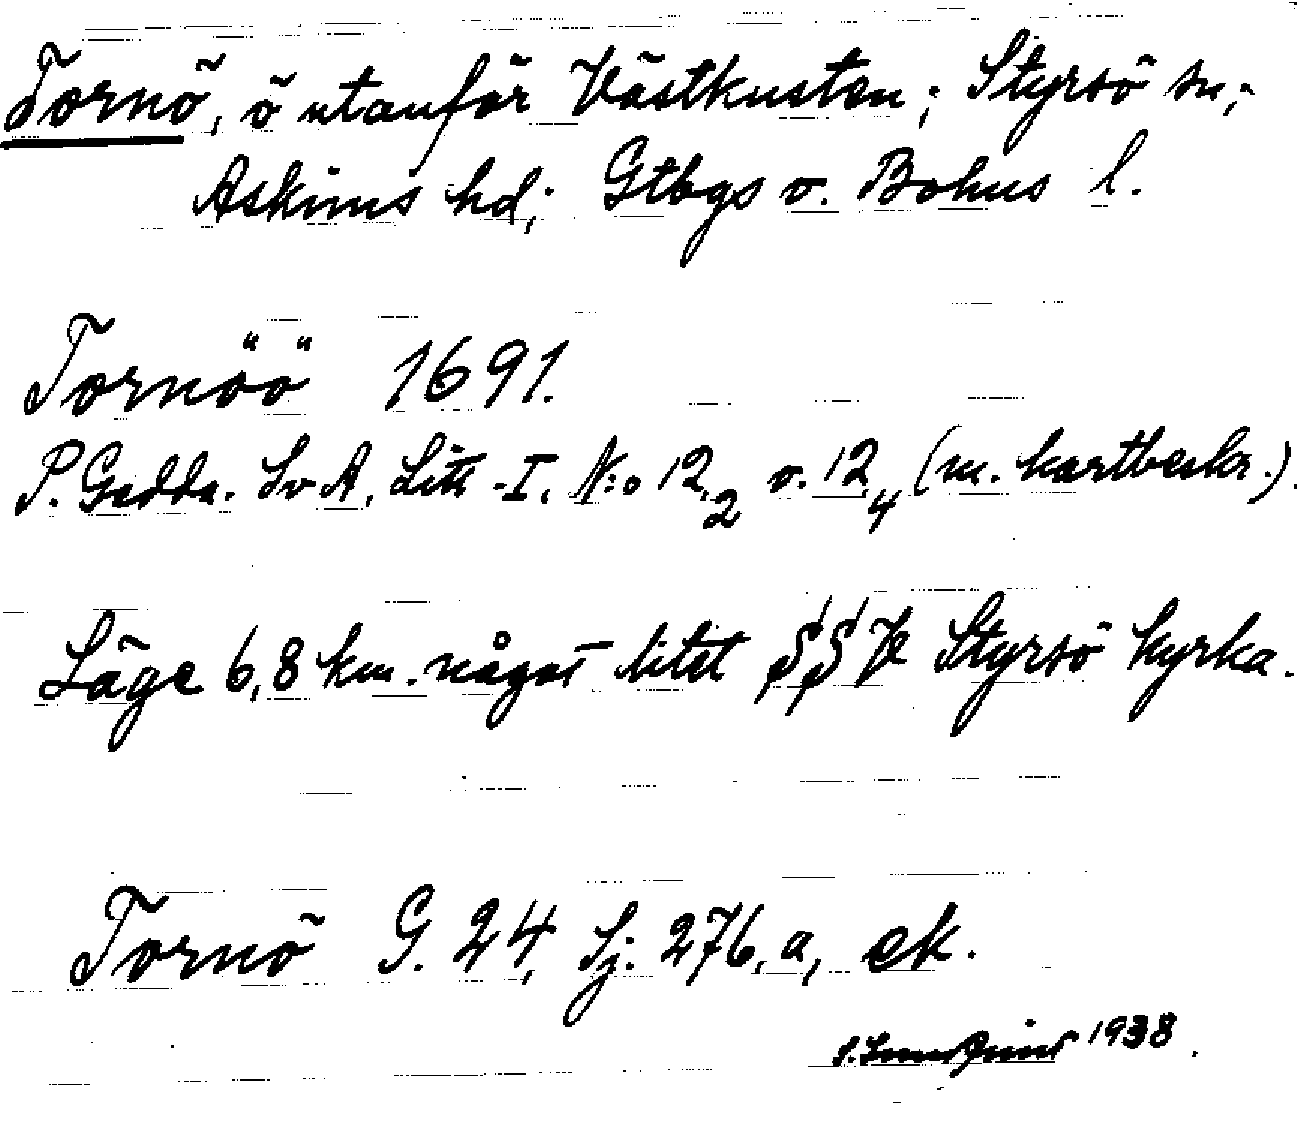 Tornö, ö utanför Västkusten; Styrsö sn;
Askims hd; Gtbgs o. Bohus l.
Tornöö 1691.
P. Gedda. SvA, Litt I. N:o 12,2 o. 12,4 (m. kartbeskr.).
Läge 6,8 km. något litet SSV Styrsö kyrka.
Tornö G. 24, Sj. 276, a, ek.
1938.